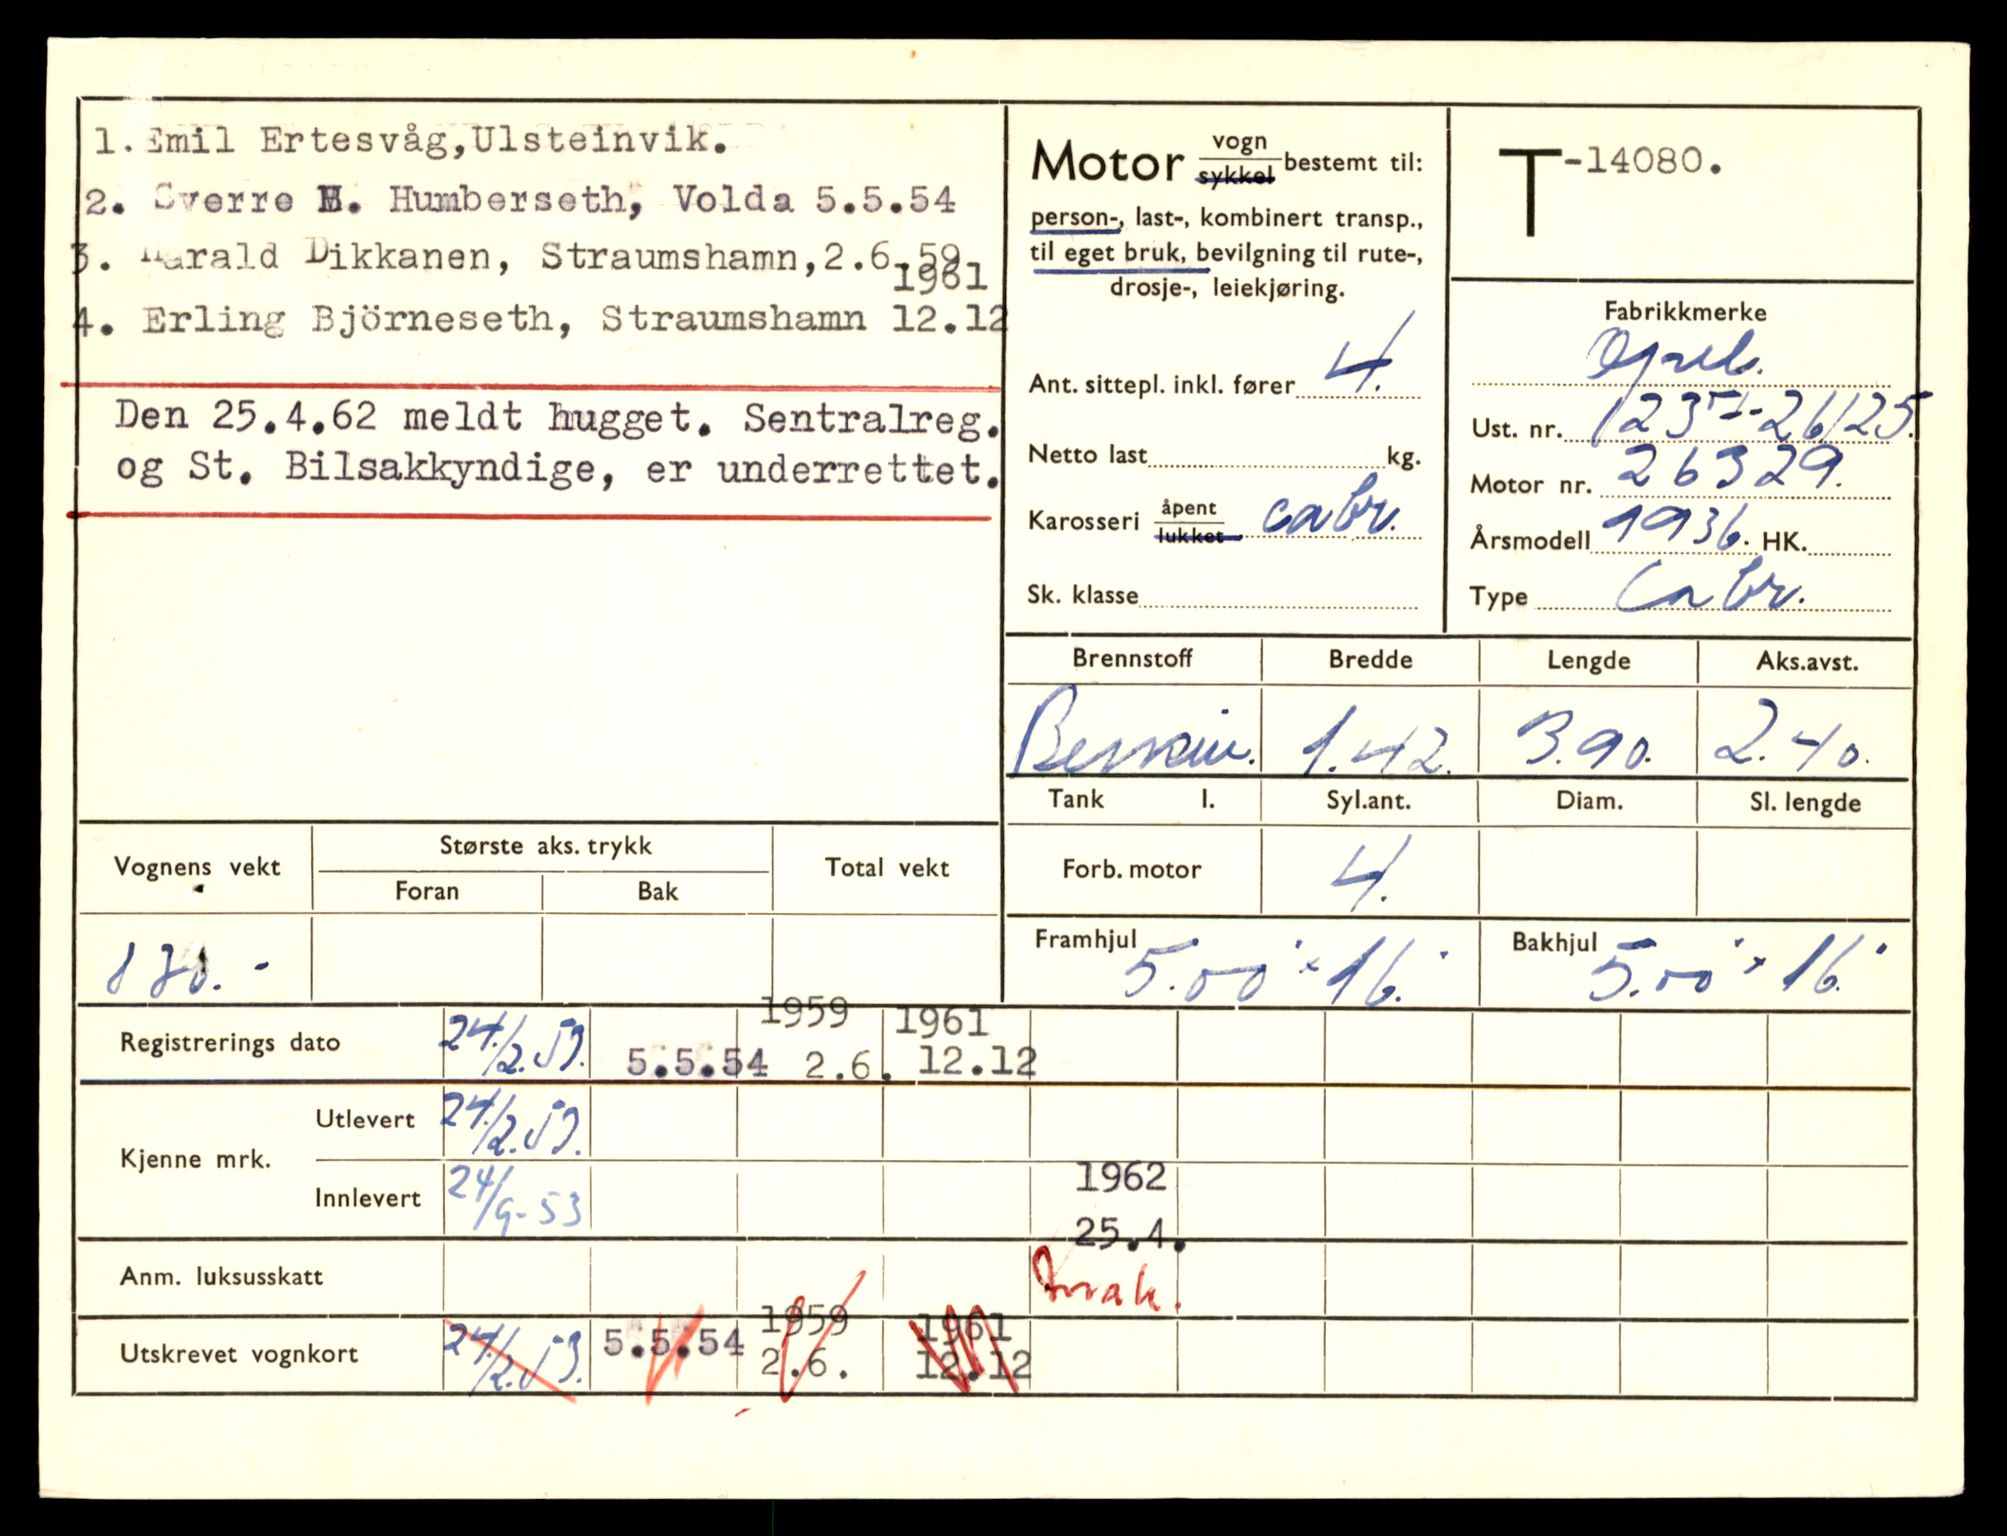 1. Emil Ertesvåg,Ulsteinvik.
2. Sverre H. Humberseth, Volda 5.5.54
3. Harald Dikkanen, Straumshamn,2.6.59
1961
4. Erling Björneseth, Straumshamn 12.12
Den 25.4.62 meldt hugget. Sentralreg.
og St. Bilsakkyndige, er underrettet.
Motor vogn
sykkel bestemt til:
person-, last-, kombinert transp.,
til eget bruk, bevilgning til rute-,
drosje-, leiekjøring.
Ant. sittepl. inkl. fører 4.
Netto last kg.
Karosseri åpent
lukket cabr.
Sk. klasse
T-14080.
Fabrikkmerke
Opel.
Ust. nr. 26125.
Motor nr. 26329.
Årsmodell 1936. HK.
Type Cabr.
Brennstoff Bredde Lengde Aks.avst.
Bensin. 1.42. 3.90. 2.40.
Tank l. Syl.ant. Diam. Sl. lengde
Forb. motor 4.
Framhjul 5.00" x 16." Bakhjul 5.00" x 16."
Vognens vekt Største aks. trykk Total vekt
Foran Bak
1959 1961
Registrerings dato 24/2.53. 5.5.54 2.6. 12.12
Kjenne mrk. Utlevert 24/2.53.
Innlevert 24/9-53 1962
25.4.
Anm. luksusskatt
1959 1961
Utskrevet vognkort 24/2.53. 5.5.54 2.6. 12.12